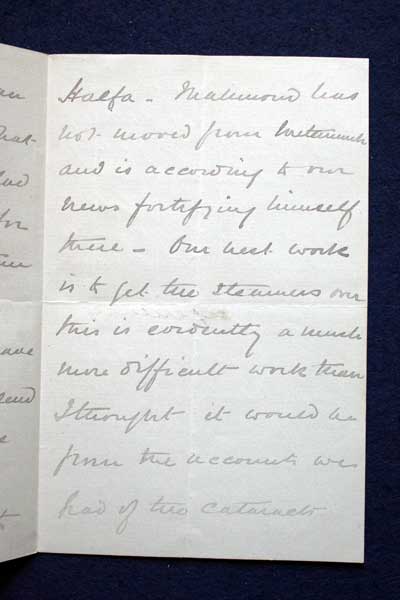 Halfa - Mahmoud has
not moved from Metemmeh
and is according to our
news fortifying himself
there - Our next work
is to get the steamers over
this is evidently a much
more difficult work than
I thought it would be
from the accounts we
had of the cataracts